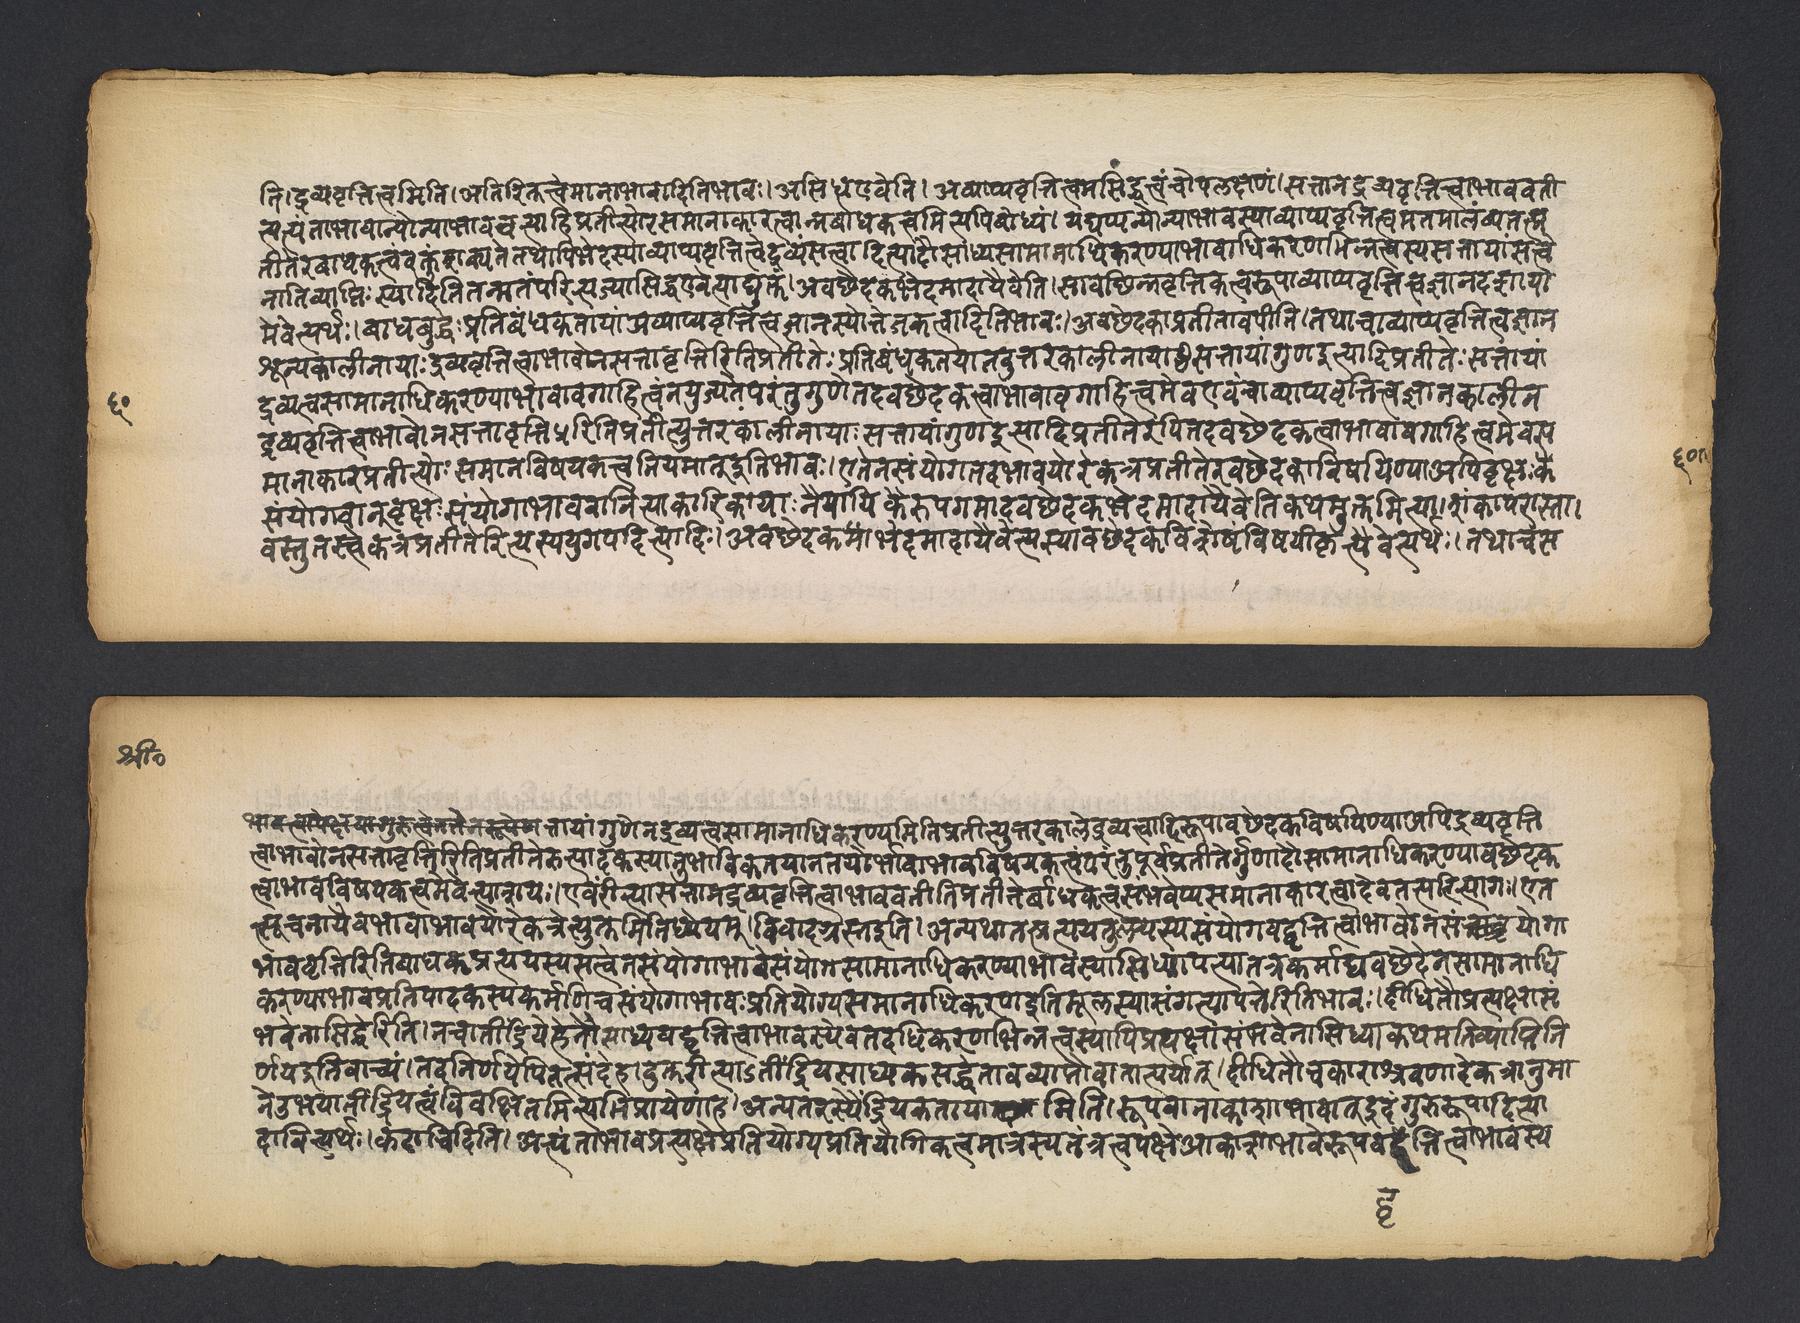 ति।द्रव्यवृत्तित्वमिति।अतिरिक्तत्वेमानाभावादितिभावः।असिधेरेवेति।अव्याप्यवृत्तित्वमसिद्धत्वंचोपलक्षणं।सत्तानद्रव्यवृत्तित्वाभाववती
त्यत्यंताभावान्योन्याभावत्वत्साहिप्रतीत्योरसमानाकारत्वान्नबाधकत्वमित्यपिबोध्यं।यद्यप्यन्योन्याभावस्याव्याप्यवृत्तित्वमतमालंब्य
तीतेरबाधकत्वंवक्तुंशक्यतेतथापिभेदस्याव्याप्यवृत्तित्वेद्रव्यंसत्त्वादित्यादौसाध्यसामानाधिकरण्याभावाधिकरणभिन्नत्वस्यसत्तायासत्वे
नातिव्याप्तिःस्यादितितन्मतंपरित्यज्यासिद्धेरेवेत्याद्युक्तं।अवछेदकभेदमादायैवेति।सावछिन्नवृत्तिकत्वरूपाव्याप्यवृत्तित्वज्ञानदशाया
मेवेत्यर्थः।बाधबुद्धेःप्रतिबंधकतायाअव्याप्यवृत्तित्वज्ञानस्योत्तेजकत्वादितिभावः।अवछेदकाप्रतीतावपीति।तथाचाव्याप्यवृत्तित्वज्ञान
शून्यकालीनायाःद्रव्यवृत्तित्वाभावेनसत्तावृत्तिरितिप्रतीतेःप्रतिबंधकतयातदुत्तरकालीनायाश्चसत्तायांगुणइत्यादिप्रतीतेःसत्तायां
द्रव्यत्वसामानाधिकरण्याभावावगाहित्वंनयुज्यतेपरंतुगुणेतदवछेदकत्वाभावावगाहित्वमेवएवंचाव्याप्यवृत्तित्वज्ञानकालीन
द्रव्यवृत्तित्वाभावोनसत्तावृत्तिरितिप्रतीत्युत्तरकालीनायाःसत्तायांगुणइत्यादिप्रतीतेरपितदवछेदकत्वाभावावगाहित्वमेवस
मानाकारप्रतीत्योःसमानविषयकत्वनियमातूइतिभावः।एतेनसंयोगतदभावयोरेकत्रप्रतीतेरवछेदकाविषयिण्याअपिवृक्षःक
संयोगवान्वृक्षःसंयोगाभाववानित्याकारिकायाःनैयायिकैरूपगमादवछेदकभेदमादायैवेतिकथमुक्तमित्याशंकापरास्ता।
वस्तुतस्त्वेकत्रप्रतीतेरित्यस्ययुगपदित्यादिः।अवछेदकभेदमादायैवेत्यस्यावछेदकविशेषंविषयीकृत्यैवेत्यर्थः।तथाचस
६०
६०
श्री०
त्तायांगुणेनद्रव्यत्वसामानाधिकरण्यमितिप्रतीत्युत्तरकालेद्रव्यत्वादिरूपावछेदकविषयिण्याअपिद्रव्यवृत्ति
त्वाभावोनसत्तावृत्तिरितिप्रतीतेरुत्पादकस्यानुभाविकतयानतयोर्भावाभावविषयकत्वंपरंतुपूर्वप्रतीतेर्गुणादौसामानाधिकरण्यावछेदक
त्वाभावविषयकत्वमेवेत्याशयः।एवंरीत्यासत्तानद्रव्यवृत्तित्वाभाववतीतिप्रतीतेर्बाधकत्वसंभवेप्यसमानाकारत्वादेवतत्परित्यागः।एत
त्सूचनायैवभावाभावयोरेकत्रेत्युक्तमितिध्येयम्।विवादग्रस्तइति।अन्यथा
भाववृत्तिरितिबाधकप्रत्ययस्यसत्वेनसंयोगाभावेसंयोगसामानाधिकरण्याभावस्यासिध्यापत्यातत्रकर्माद्यवछेदेनसामानाधि
करण्याभावप्रतिपादकस्यकर्मणिचसंयोगाभावःप्रतियोग्यसमानाधिकरणइतिमूलस्यासंगत्यापत्तेरितिभावः।दीधितौप्रत्यक्षासं
भवेनासिद्धेरिति।नचातींद्रियेहेतौसाध्यवद्वृत्तित्वाभावस्येवतदधिकरणभिन्नत्वस्यापिप्रत्यक्षासंभवेनासिध्याकथमतिव्याप्तिनि
र्णयइतिवाच्यं।तदनिर्णयेपितत्संदेहाइक्तरीत्याऽतींद्रियसाध्यकसद्धेतावव्याप्तौवातात्पर्यात्।दीधितौचकाराश्रवणादेकत्रानुमा
नेउभयातींद्रियत्वंविवक्षितमित्यभिप्रायेणाह।अन्यतरस्यैंद्रियकताया मिति।रूपवानाकाशाभावात्इदंगुरुरूपादित्या
दावित्यर्थः।कदाचिदिति।अत्यंताभावप्रत्यक्षेप्रतियोग्यप्रतियोगिकत्वमात्रस्यतंत्रत्वपक्षेआकाशाभावेरूपवद्वृत्तित्वाभावस्य
द्वृ